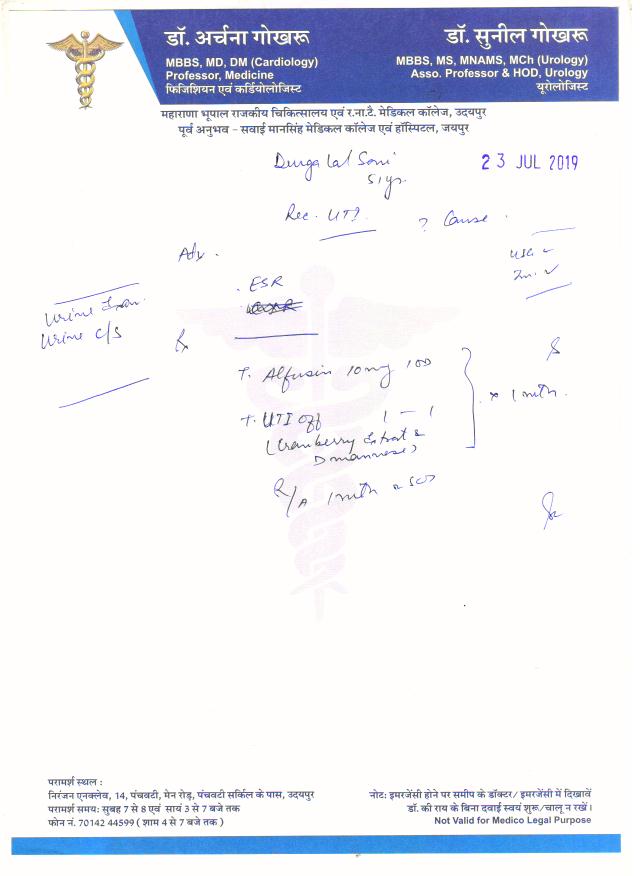 डॉ. अर्चना गोखरू
MBBS, MD, DM (Cardiology)
Professor, Medicine
फिजिशियन एवं कर्डियोलोजिस्ट
डॉ. सुनील गोखरू
MBBS, MS, MNAMS, MCh (Urology)
Asso. Professor & HOD, Urology
यूरोलोजिस्ट
महाराणा भूपाल राजकीय चिकित्सालय एवं र.ना.टै. मेडिकल कॉलेज, उदयपुर
पूर्व अनुभव - सवाई मानसिंह मेडिकल कॉलेज एवं हॉस्पिटल, जयपुर
Durga Lal Soni
51 yr.
23 JUL 2019
Rec. UTI. ? Cause.
Adv.
ESR
Urine C/S
Rx
T. Alfusin 10mg 1OD
T. UTI off 1 - 1
(Cranberry Extrat &
Dmannose)
x 1 mth.
R/A 1 mth
परामर्श स्थल :
निरंजन एनक्लेव, 14, पंचवटी, मेन रोड़, पंचवटी सर्किल के पास, उदयपुर
परामर्श समय: सुबह 7 से 8 एवं सायं 3 से 7 बजे तक
फोन नं. 70142 44599 ( शाम 4 से 7 बजे तक )
नोट: इमरजेंसी होने पर समीप के डॉक्टर/ इमरजेंसी में दिखावें
डॉ. की राय के बिना दवाई स्वयं शुरू/चालू न रखें।
Not Valid for Medico Legal Purpose